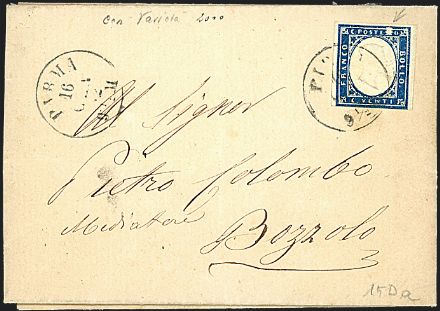 con varietà 2000
C. POSTE
FRANCO
BOLLO
C. VENTI
PARMA
16
Al Signor
Pietro Colombo
Mediatore
Bozzolo
15Da